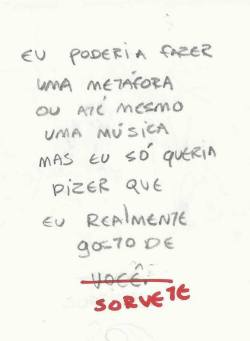 EU PODERIA FAZER
UMA METÁFORA
OU ATÉ MESMO
UMA MÚSICA
MAS EU SÓ QUERIA
DIZER QUE
EU REALMENTE
gOSTO DE
VOCÊ
SORVETE